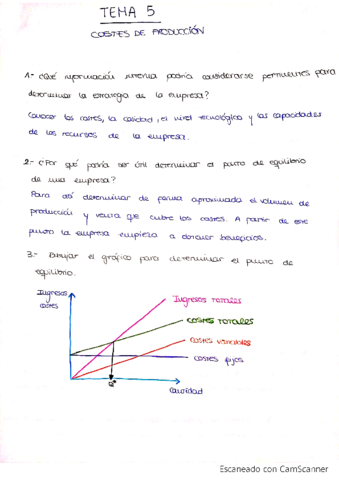 TEMA 5
COSTES DE PRODUCCIÓN
1.- ¿Qué información interna podría considerarse pertinentes para
determinar la estrategia de la empresa?
Conocer los costes, la calidad, el nivel tecnológico y las capacidades
de los recursos de la empresa.
2.- ¿Por qué podría ser útil determinar el punto de equilibrio
de una empresa?
Para así determinar de forma aproximada el volumen de
producción y venta que cubre los costes. A partir de este
punto la empresa empieza a obtener beneficios.
3.- Dibujar el gráfico para determinar el punto de
equilibrio.
Ingresos
costes
Ingresos totales
costes totales
costes variables
costes fijos
cantidad
Escaneado con CamScanner